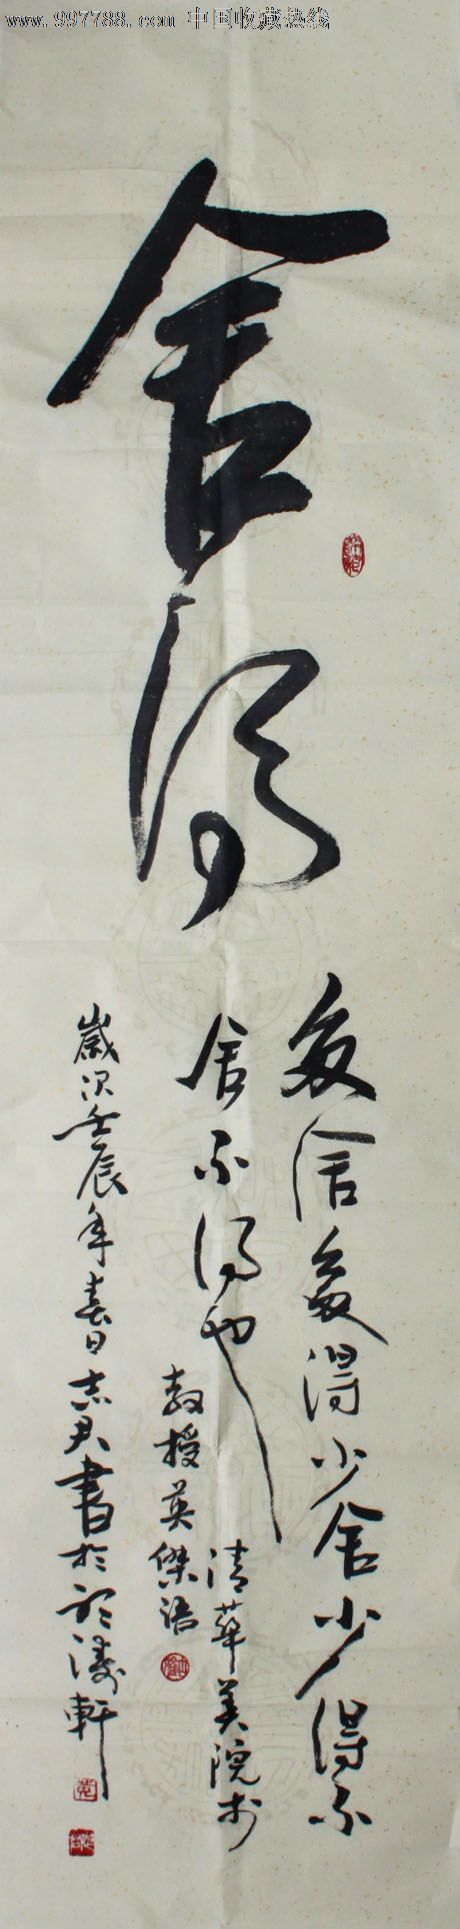 www.997788.com 中国收藏热线
舍得
多舍多得少舍少得不
舍不得也
清華美院
教授英傑语
歲次壬辰年春日志君書於听濤軒